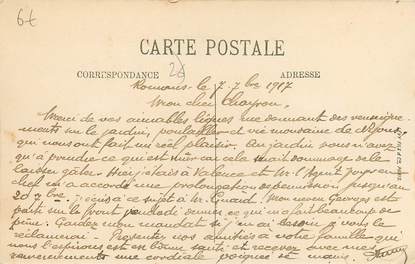 6€
CARTE POSTALE
2€
CORRESPONDANCE ADRESSE
Romans le 7 - 7bre 1917
Mon cher Chayron,
Merci de vos aimables lignes me donnant des renseigne-
ments sur le jardin, poulailler et vie de
qui nous ont fait un réel plaisir. Au jardin vous n'avez
qu'à prendre ce qui est mûr car cela serait dommage de le
laisser gâter. Hier j'étais à Valence et Mr l'Agent
chef m'a accordé une prolongation de permission jusqu'au
20 7bre. J'écris à ce sujet à Mr. Mon neveu Georges est
parti sur le front vendredi dernier ce qui m'a fait beaucoup de
peine. Gardez mon mandat si j'en ai besoin je vous le
réclamerai. Présentez nos amitiés à votre famille qui
nous l'espérons est en bonne santé et recevez avec mes
remerciements une cordiale poignée de mains.